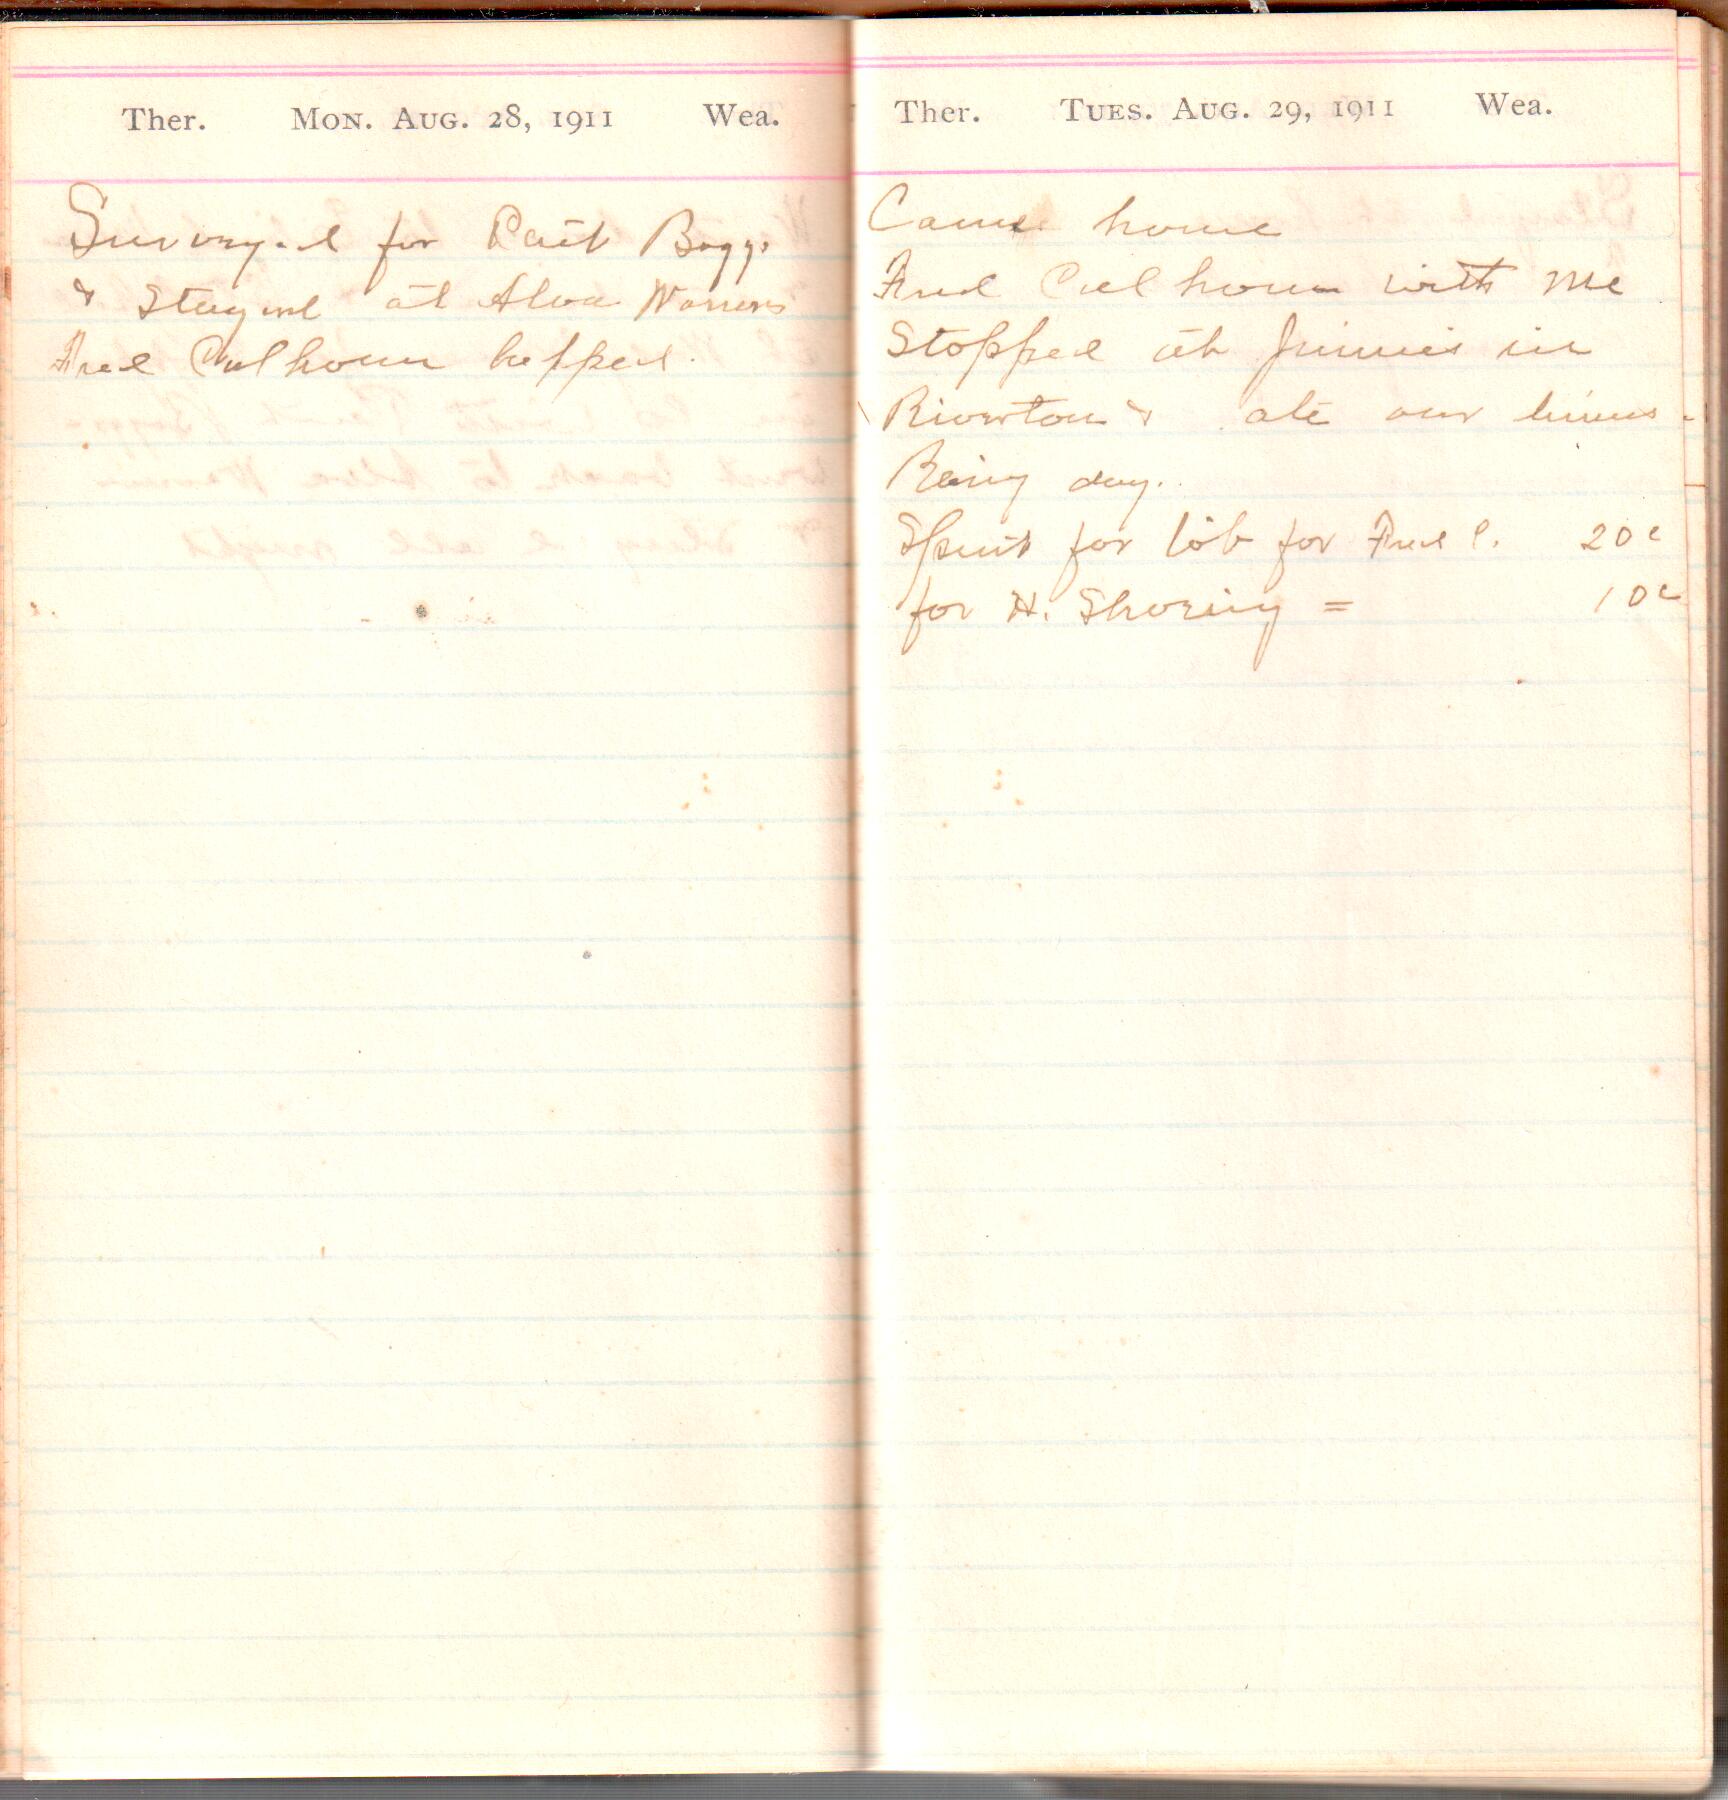 Ther. Mon. Aug. 28, 1911 Wea.
Surveyed for Boggs
& Stayed at Alva Warners
Fred Calhoun helped.
Ther. Tues. Aug. 29, 1911 Wea.
Came home
Fred Calhoun with me
Stopped at Jimmies in
Riverton & ate our
Rainy day.
Spent for tob for Fred C. 20c
for H. Shoeing = 10c